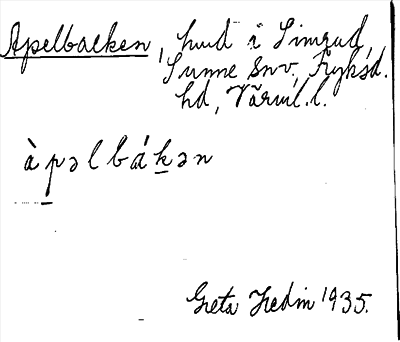 Apelbacken, hmd i Simrud,
Sunne snv, Fryksd.
hd, Värml. l.
àpəlbákən
Greta Hedin 1935.